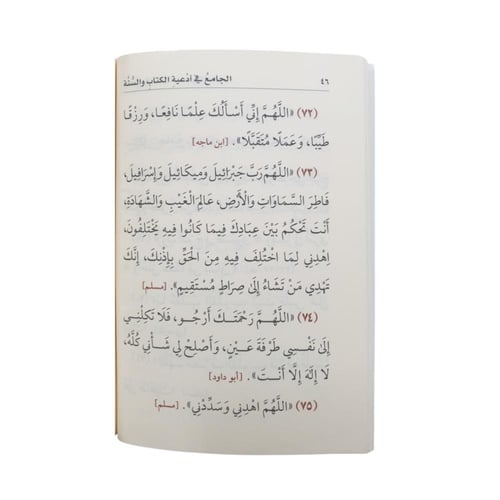 ٤٦ الجامع في أدعية الكتاب والسُّنَّة
(٧٢) «اللَّهُمَّ إِنِّي أَسْأَلُكَ عِلْمًا نَافِعًا، وَرِزْقًا
طَيِّبًا، وَعَمَلًا مُتَقَبَّلًا». [ابن ماجه]
(٧٣) «اللَّهُمَّ رَبَّ جَبْرَائِيلَ وَمِيكَائِيلَ وَإِسْرَافِيلَ،
فَاطِرَ السَّمَاوَاتِ وَالْأَرْضِ، عَالِمَ الْغَيْبِ وَالشَّهَادَةِ،
أَنْتَ تَحْكُمُ بَيْنَ عِبَادِكَ فِيمَا كَانُوا فِيهِ يَخْتَلِفُونَ،
اِهْدِنِي لِمَا اخْتُلِفَ فِيهِ مِنَ الْحَقِّ بِإِذْنِكَ، إِنَّكَ
تَهْدِي مَنْ تَشَاءُ إِلَى صِرَاطٍ مُسْتَقِيمٍ». [مسلم]
(٧٤) «اللَّهُمَّ رَحْمَتَكَ أَرْجُو، فَلَا تَكِلْنِي
إِلَى نَفْسِي طَرْفَةَ عَيْنٍ، وَأَصْلِحْ لِي شَأْنِي كُلَّهُ،
لَا إِلَهَ إِلَّا أَنْتَ». [أبو داود]
(٧٥) «اللَّهُمَّ اهْدِنِي وَسَدِّدْنِي». [مسلم]